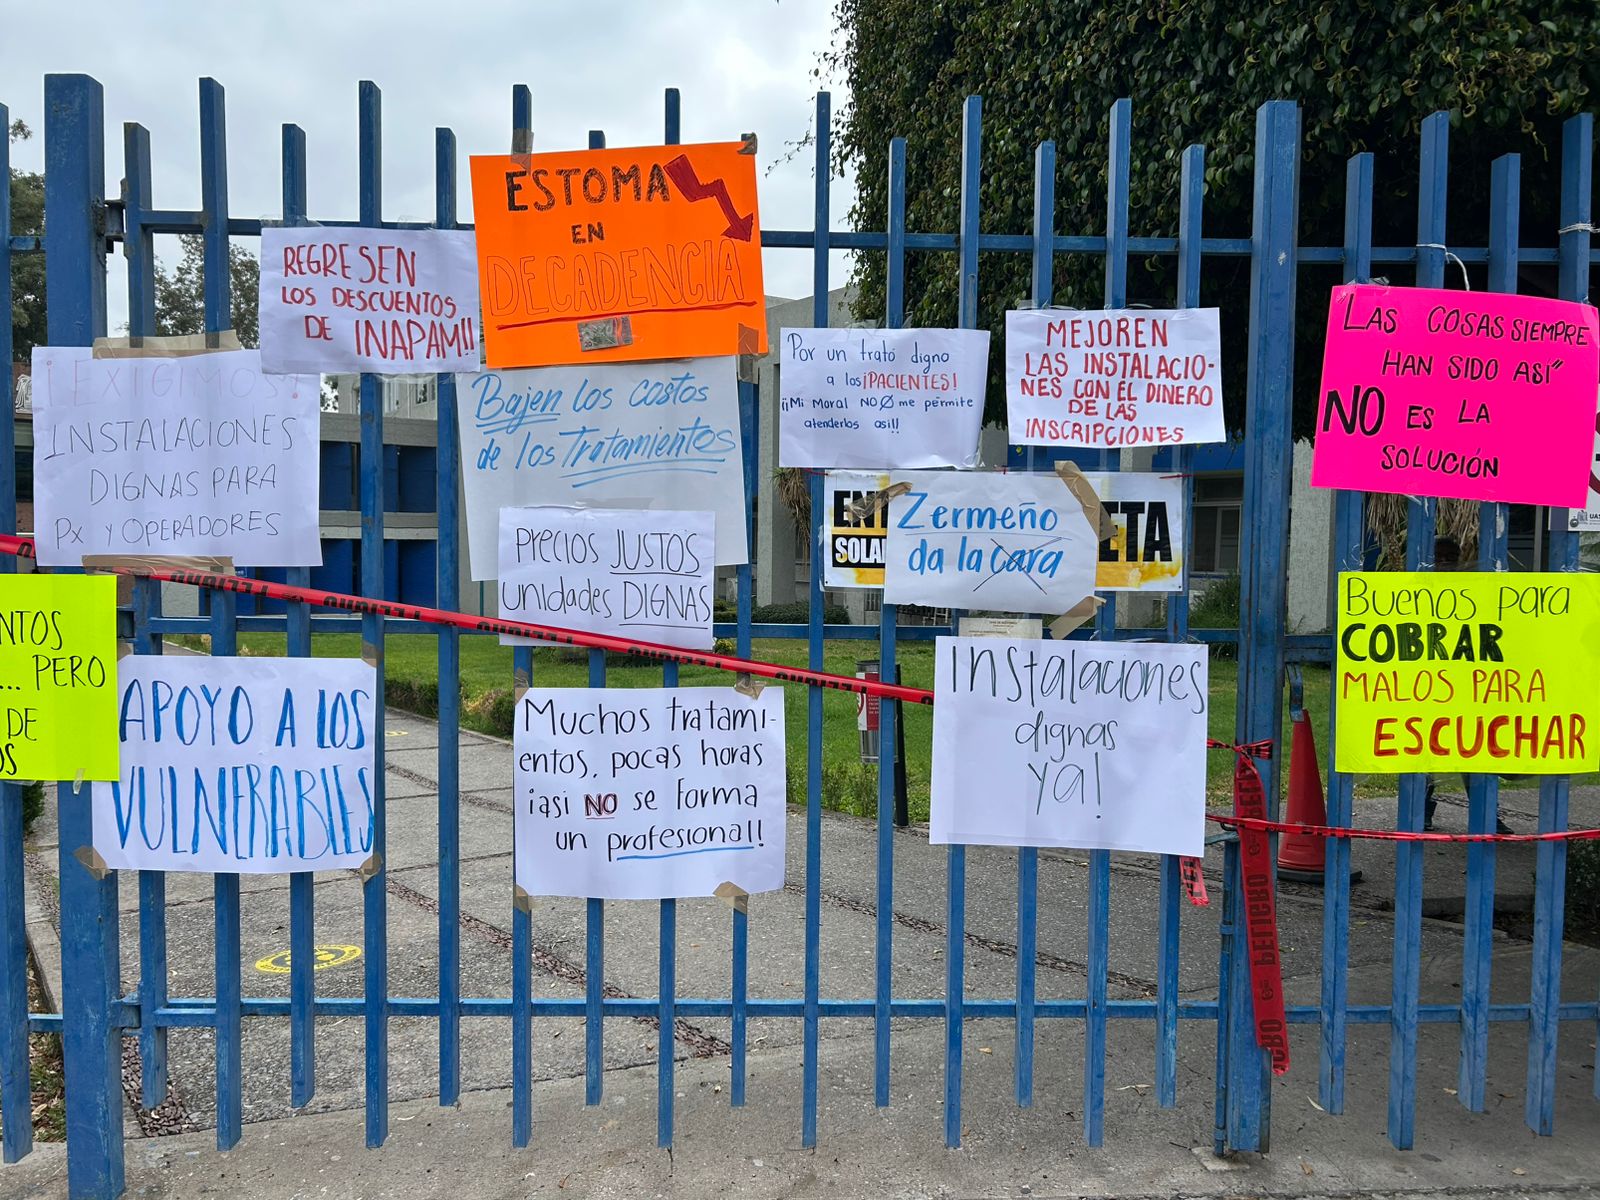 ESTOMA
EN
DECADENCIA
REGRESEN
LOS DESCUENTOS
DE INAPAM!!
¡EXIGIMOS!
INSTALACIONES
DIGNAS PARA
Px Y OPERADORES
Bajen los costos
de los Tratamientos
Por un trato digno
a los ¡PACIENTES!
¡¡Mi Moral NO me permite
atenderlos asi!!
MEJOREN
LAS INSTALACIO-
NES CON EL DINERO
DE LAS
INSCRIPCIONES
LAS COSAS SIEMPRE
HAN SIDO ASÍ"
NO ES LA
SOLUCIÓN
PRECIOS JUSTOS
unidades DIGNAS
EN
SOLA
ETA
Zermeño
da la cara
NTOS
... PERO
DE
OS
APOYO A LOS
VULNERABLES
Muchos tratami-
entos, pocas horas
¡asi NO se forma
un profesional!
Instalaciones
dignas
ya!
Buenos para
COBRAR
MALOS PARA
ESCUCHAR
PELIGRO
PELIGRO
PELIGRO
PELIGRO
PELIGRO